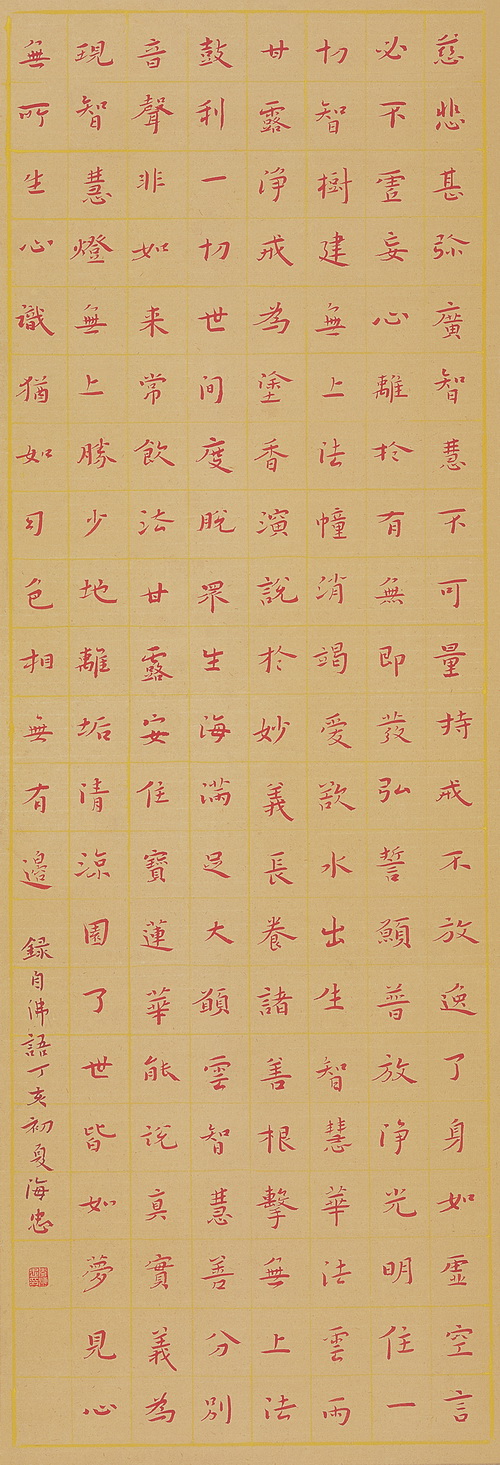 慈悲甚弥廣智慧不可量持戒不放逸了身如虛空言
必不虛妄心離於有無即發弘誓願普放淨光明住一
切智樹建無上法幢消竭愛欲水出生智慧華法雲雨
甘露淨戒為塗香演說於妙義長養諸善根擊無上法
鼓利一切世间度脫眾生海滿足大願雲智慧善分別
音聲非如来常飲法甘露安住寶蓮華能說真實義為
現智慧燈無上勝少地離垢清涼園了世皆如夢見心
無所生心識猶如幻色相無有邊
録自佛語丁亥初夏海忠